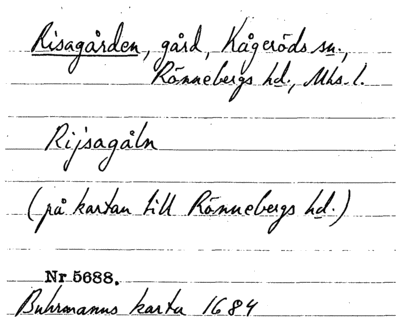 Risagården, gård, Kågeröds sn.,
Rönnebergs hd., Mhs. l.
Rijsagåln
(på kartan till Rönnebergs hd.)
Nr 5688.
Buhrmanns karta 1684